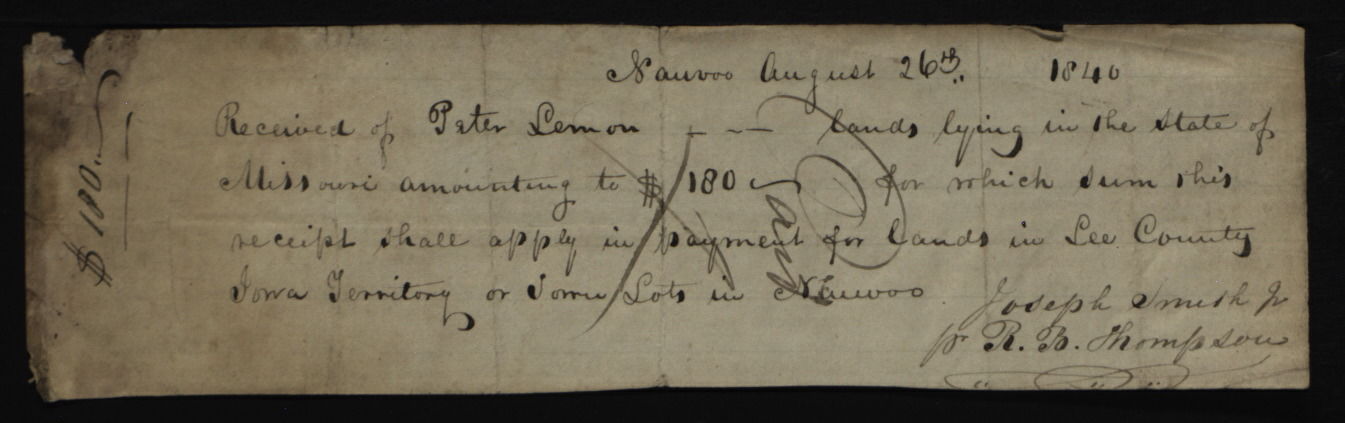 Nauvoo August 26th 1840
Received of Peter Lemon - - - lands lying in the state of
Missouri amounting to $180 for which sum this
receipt shall apply in payment for lands in Lee County
Iowa Territory or Town Lots in Nauvoo
Joseph Smith Jr
pr R. B. Thompson
$180.
Paid